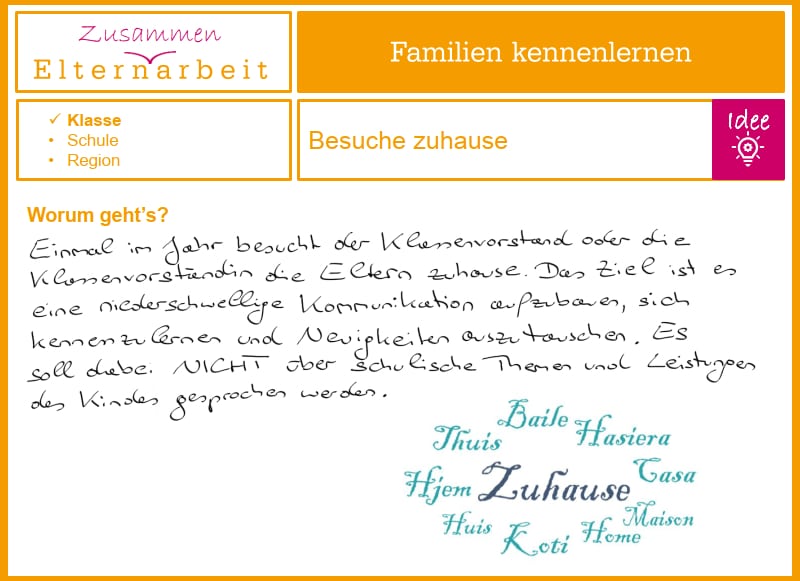 Zusammen
Elternarbeit
Familien kennenlernen
✓ Klasse
• Schule
• Region
Besuche zuhause
Idee
Worum geht's?
Einmal im Jahr besucht der Klassenvorstand oder die
Klassenvorständin die Eltern zuhause. Das Ziel ist es
eine niederschwellige Kommunikation aufzubauen, sich
kennenzulernen und Neuigkeiten auszutauschen. Es
soll dabei NICHT über schulische Themen und Leistungen
des Kindes gesprochen werden.
Baile
Thuis Hasiera
Casa
Hjem Zuhause
Maison
Huis Koti Home